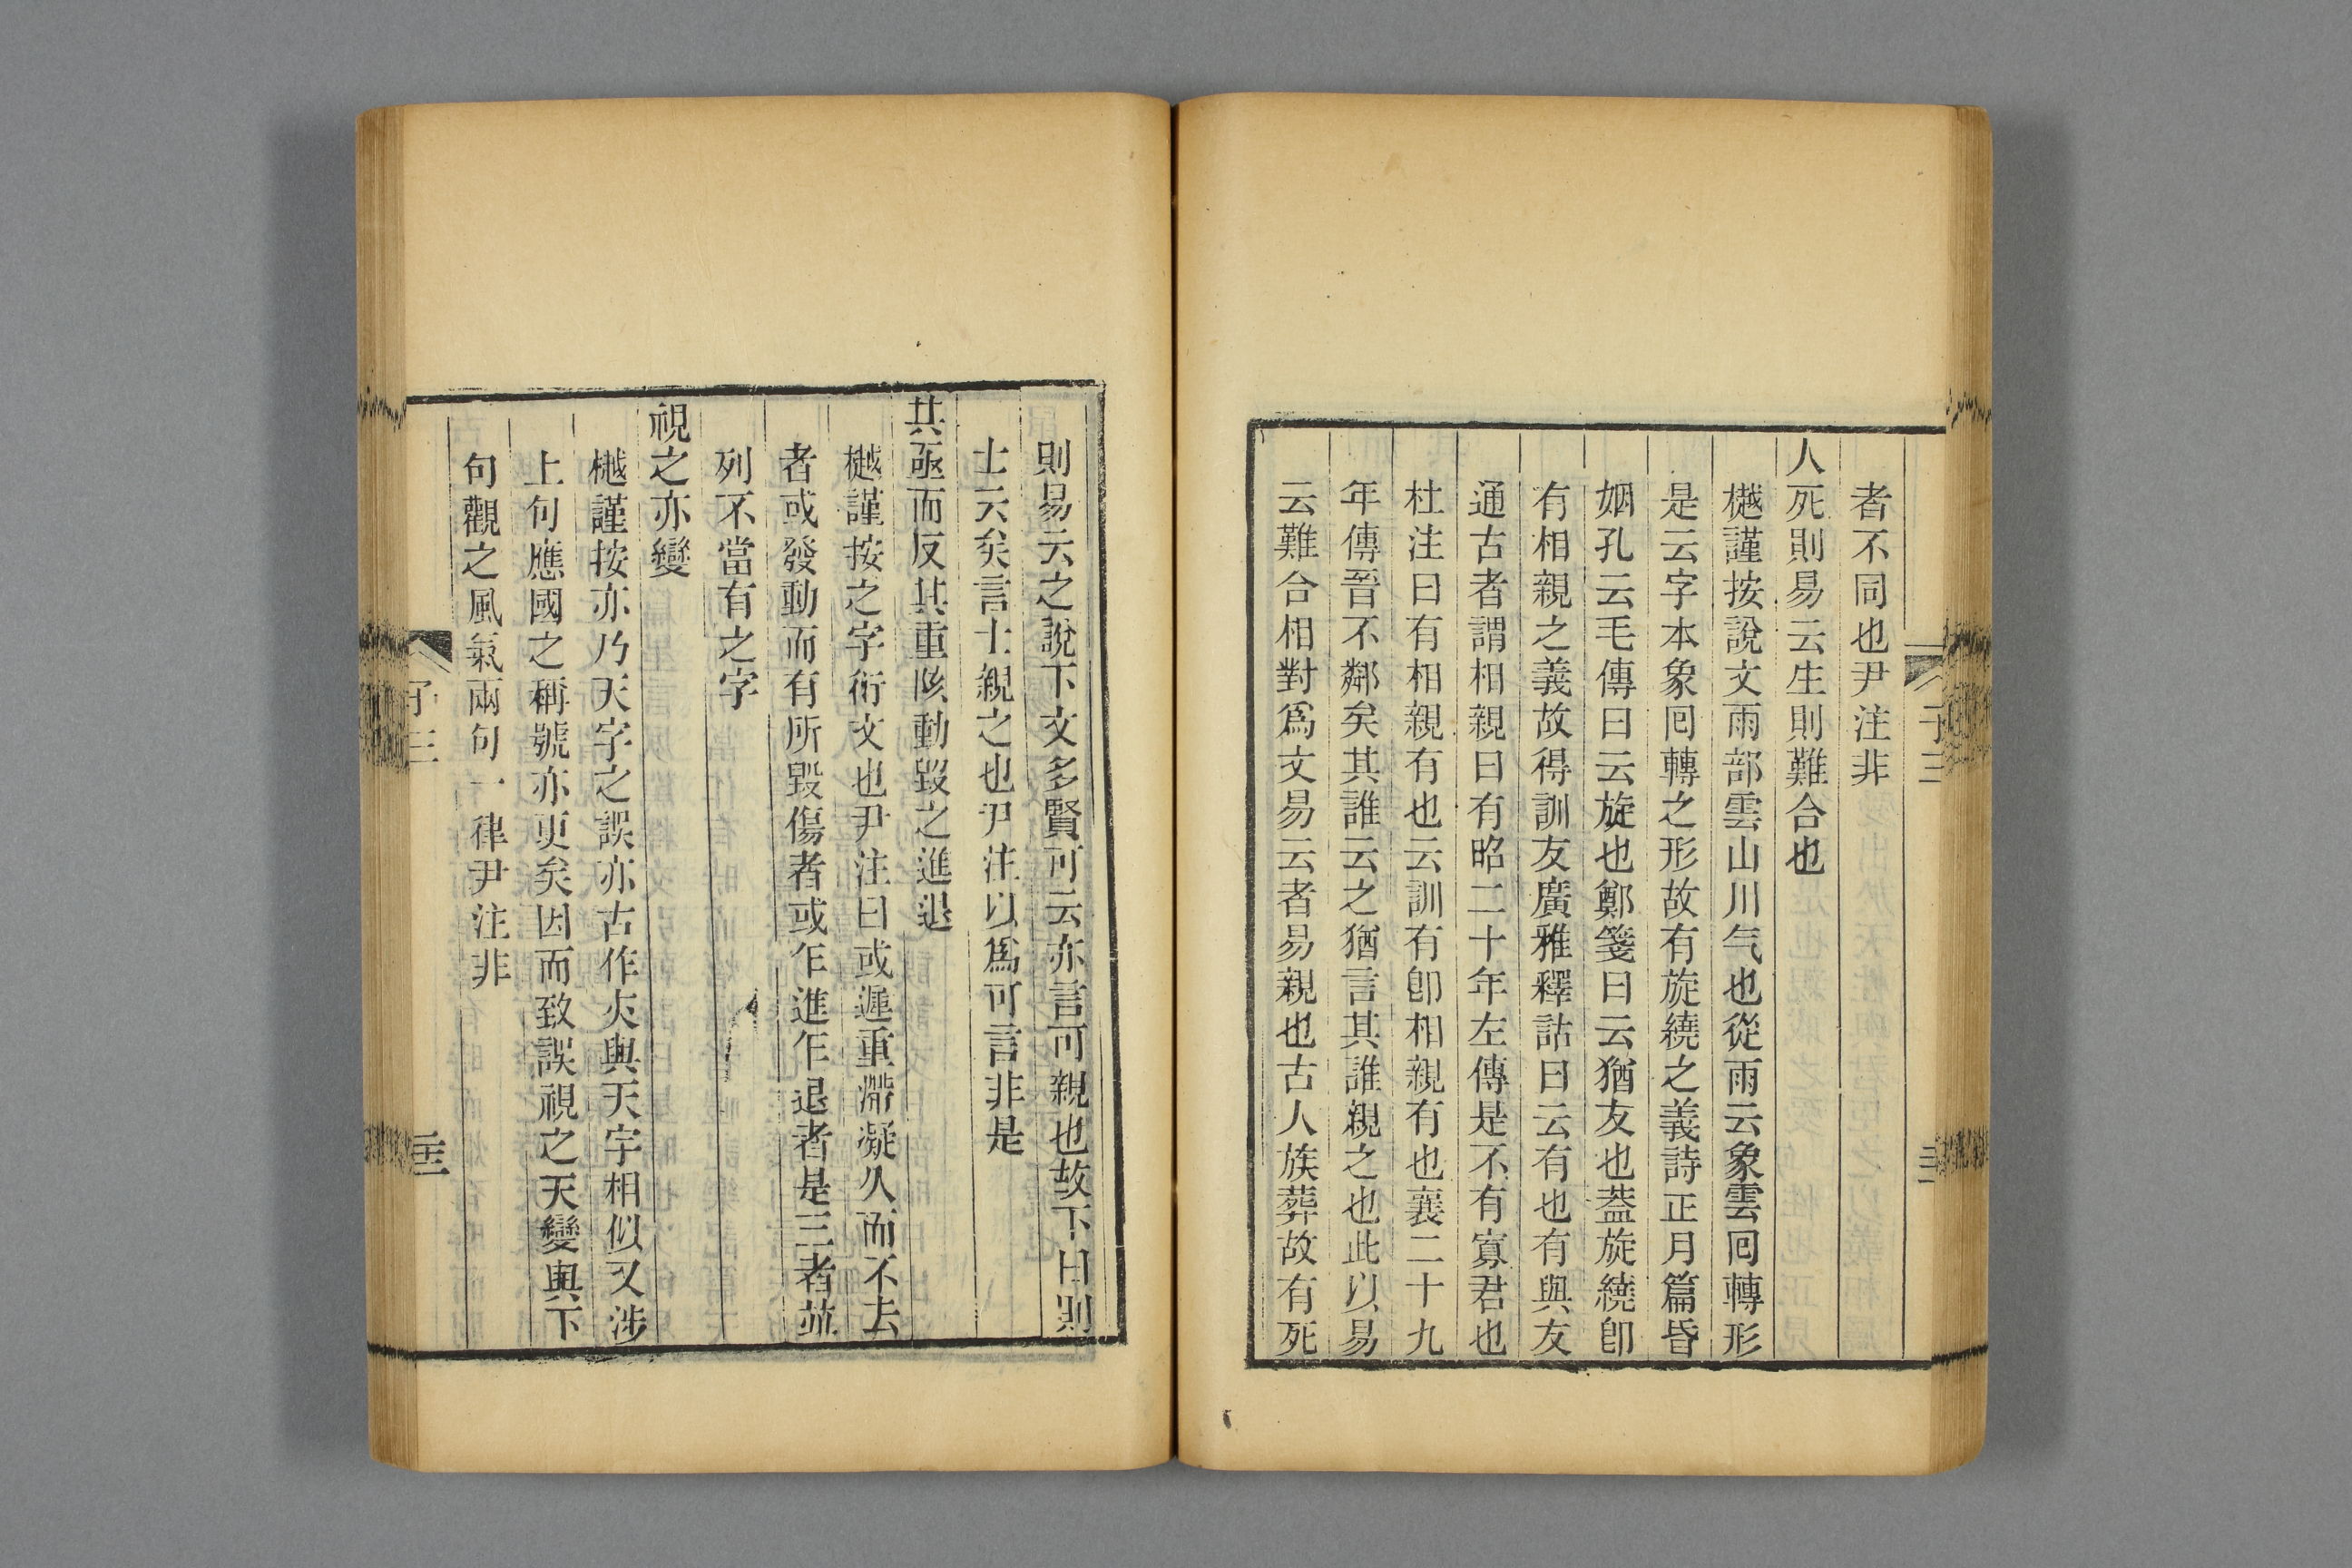 者不同也尹注非
人死則易云生則難合也
樾謹按說文雨部雲山川气也從雨云象雲回轉形
是云字本象回轉之形故有旋繞之義詩正月篇昏
姻孔云毛傳曰云旋也鄭箋曰云猶友也葢旋繞卽
有相親之義故得訓友廣雅釋詁曰云有也有與友
通古者謂相親曰有昭二十年左傳是不有寡君也
杜注曰有相親有也云訓有卽相親有也襄二十九
年傳晉不鄰矣其誰云之猶言其誰親之也此以易
云難合相對爲文易云者易親也古人族葬故有死
則易云之說下文多賢可云亦言可親也故下曰則
士云矣言士親之也尹注以爲可言非是
其亟而反其重陔動毀之進退
樾謹按之字衍文也尹注曰或遲重滯凝久而不去
者或發動而有所毀傷者或乍進乍退者是三者並
列不當有之字
視之亦變
樾謹按亦乃天字之誤亦古作夾與天字相似又涉
上句應國之稱號亦更矣因而致誤視之天變與下
句觀之風氣兩句一律尹注非
子三